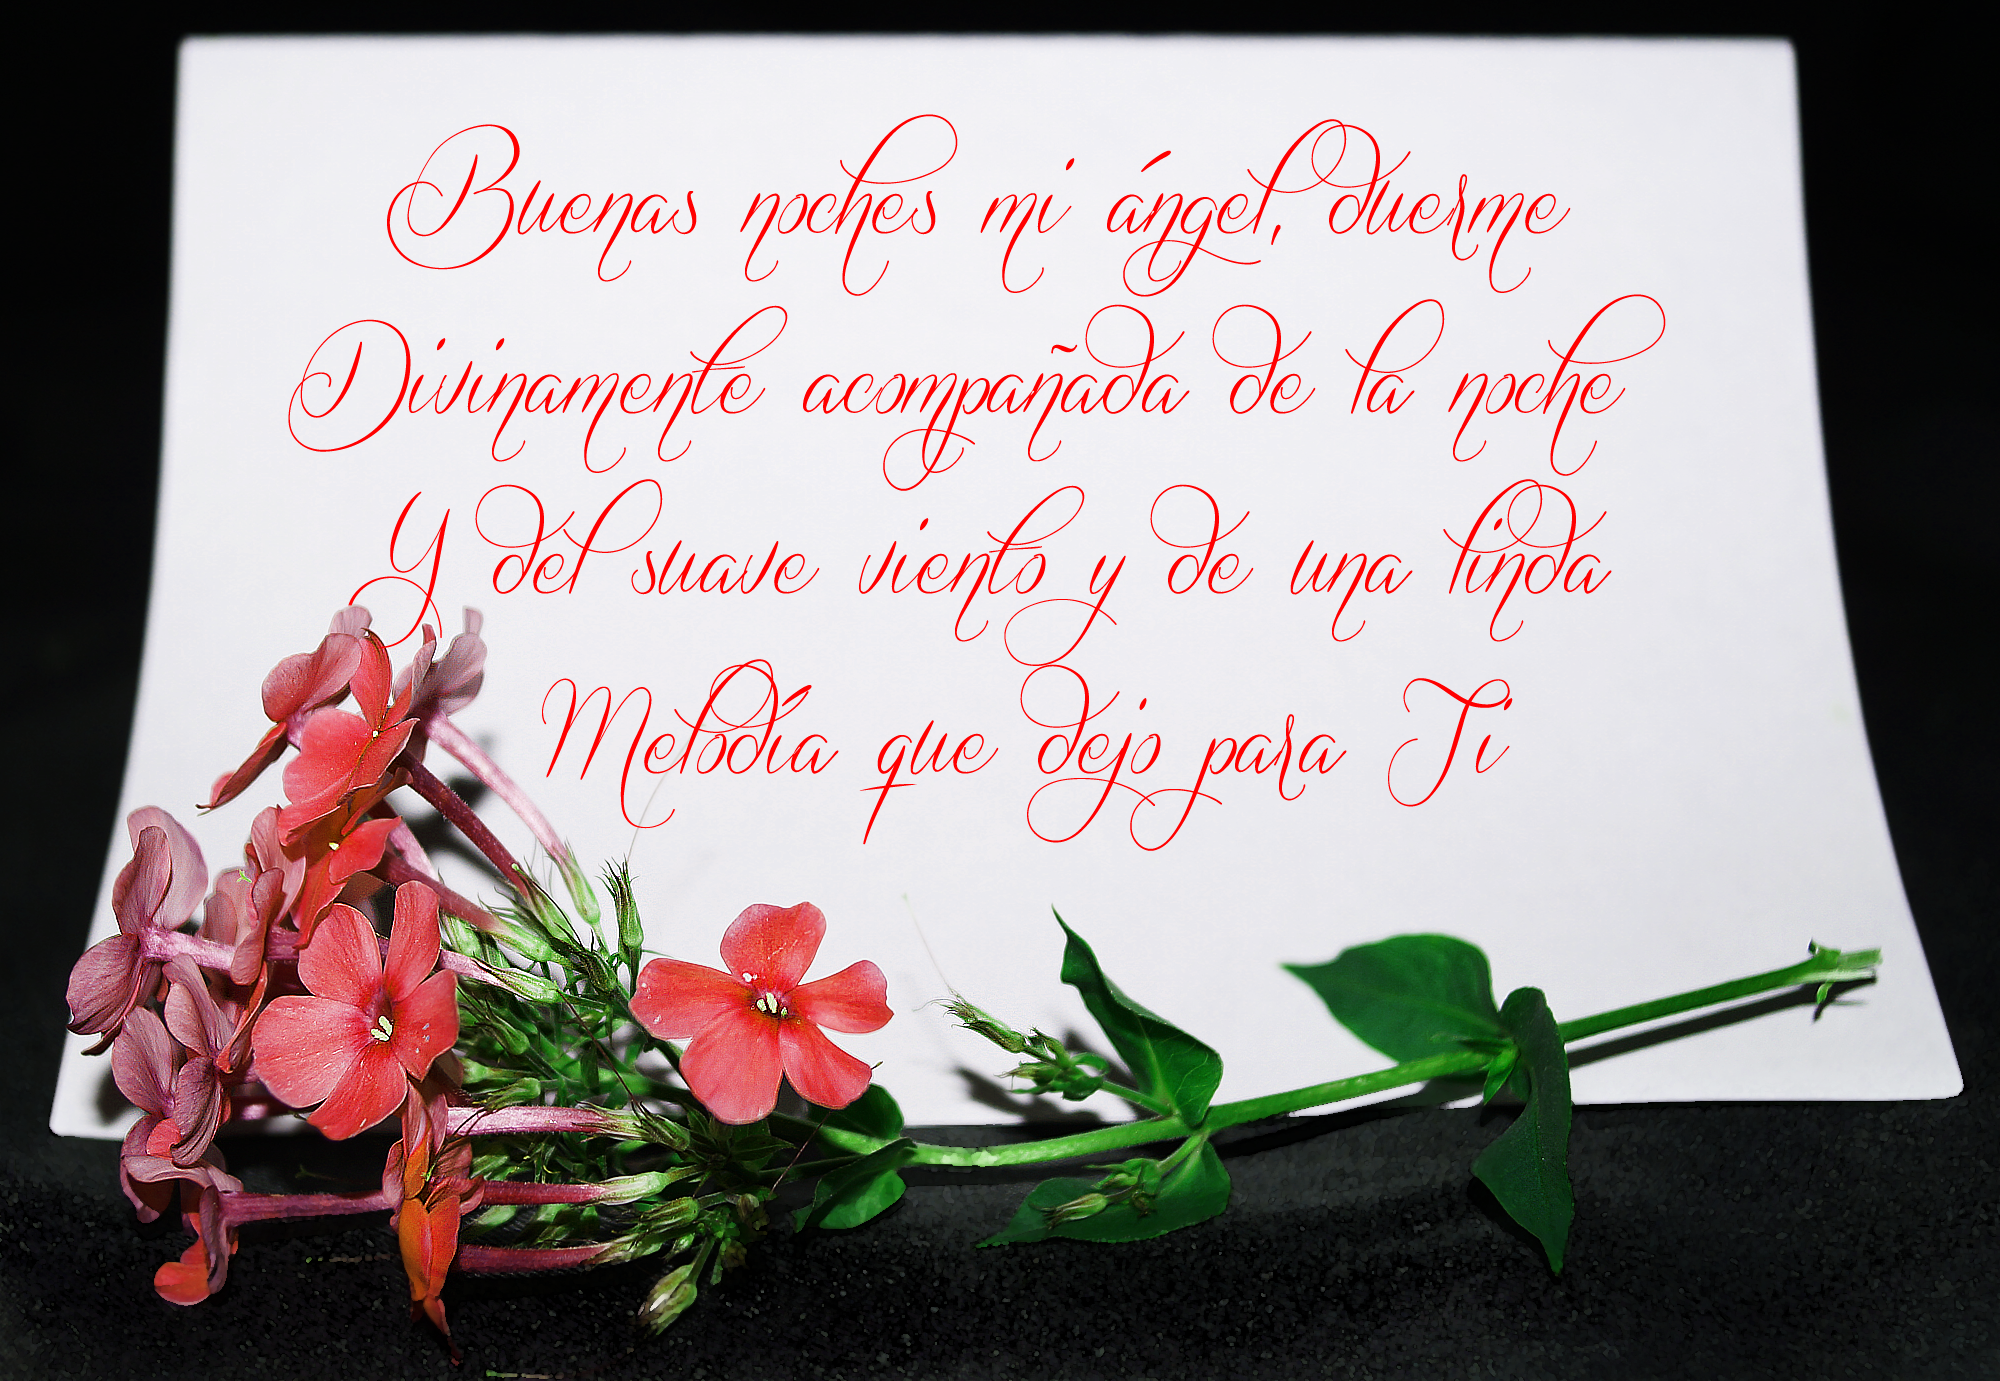 Buenas noches mi ángel, duerme
Divinamente acompañada de la noche
Y del suave viento y de una linda
Melodía que dejo para Ti